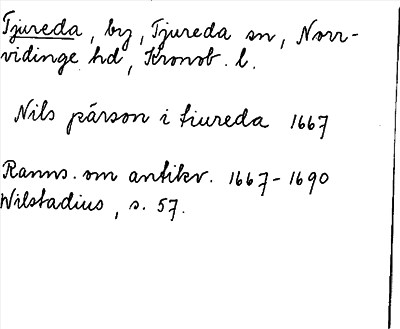 Tjureda, by, Tjureda sn, Norr-
vidinge hd, Kronob. l.
Nils pärson i tiureda 1667
Ranns. om antikv. 1667-1690
Wilstadius, s. 57.